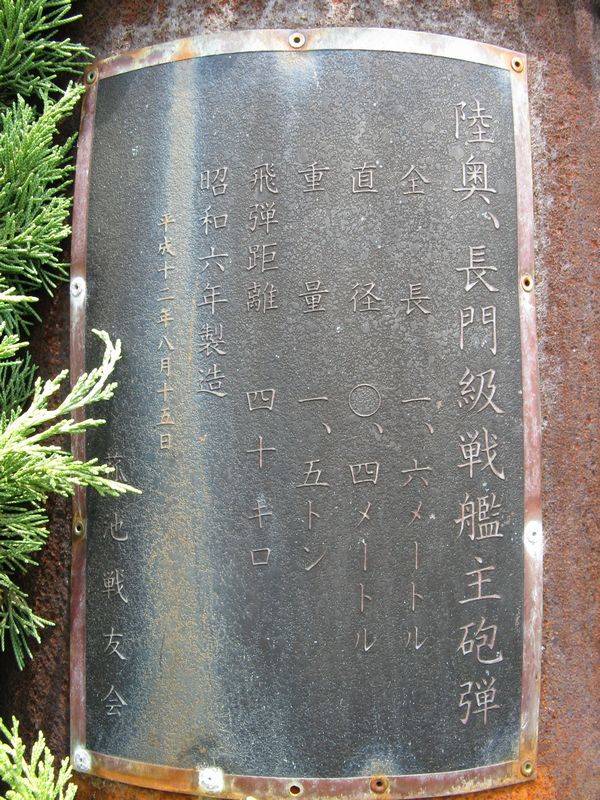 陸奥、長門級戦艦主砲弾
全長 一、六メートル
直径 〇、四メートル
重量 一、五トン
飛弾距離 四十キロ
昭和六年製造
平成十二年八月十五日
池戦友会